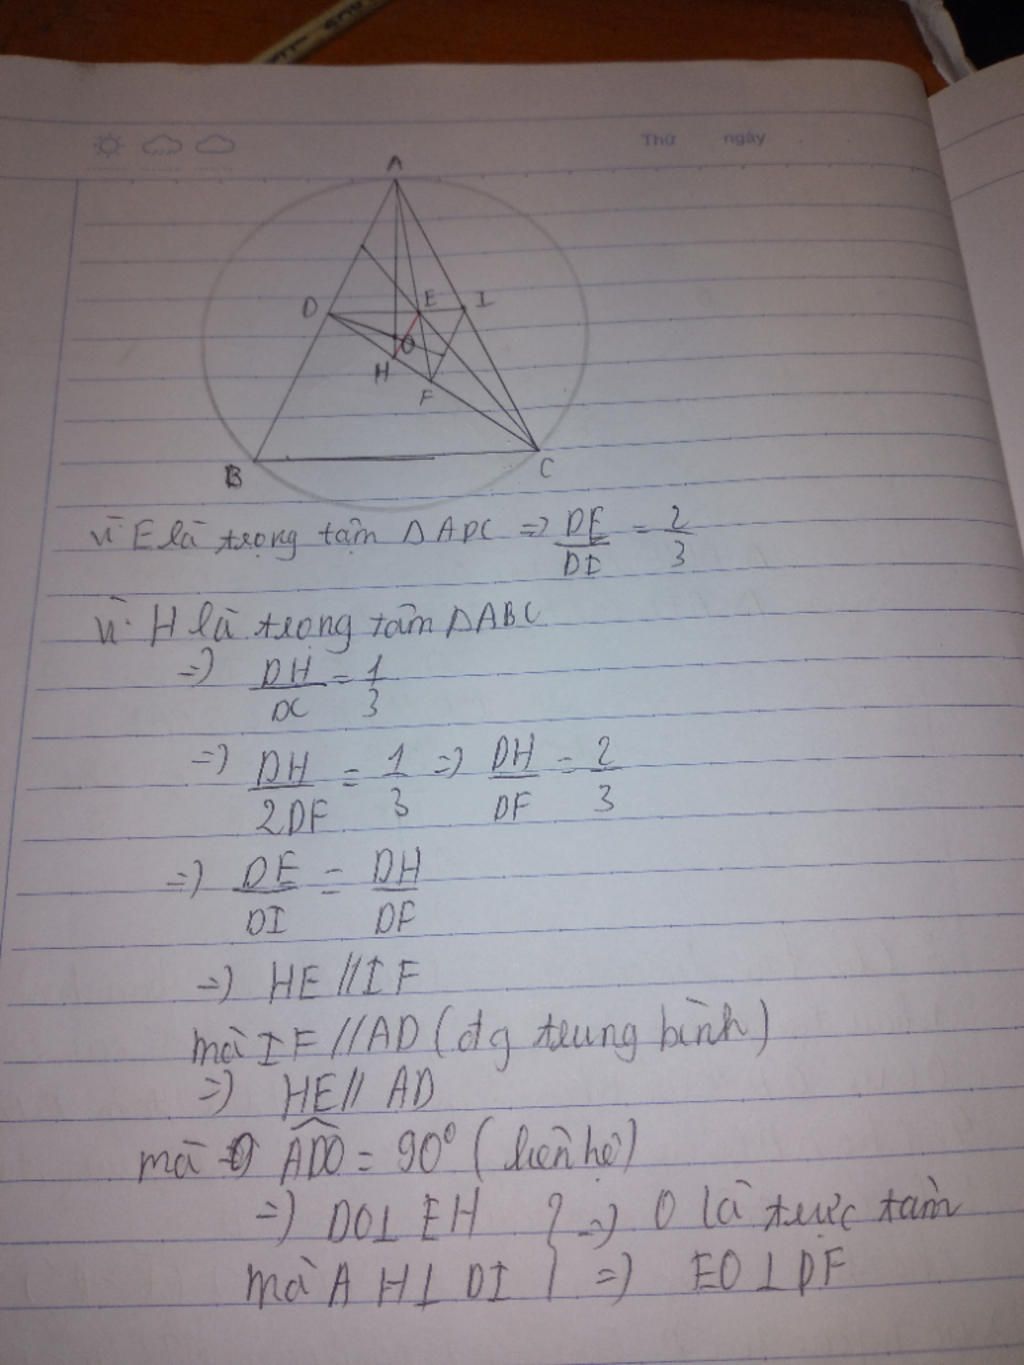 Thứ ngày
A
D E I
O
H
F
B C
Vì E là trọng tâm ΔADC => DE/DI = 2/3
Vì H là trọng tâm ΔABC
=> DH/DC = 1/3
=> DH/2DF = 1/3 => DH/DF = 2/3
=> DE/DI = DH/DF
=> HE // IF
mà IF // AD (đg trung bình)
=> HE // AD
mà ADO = 90° (liên hệ)
=> DO⊥ EH } => O là trực tâm
mà A H⊥ DI } => EO ⊥ DF